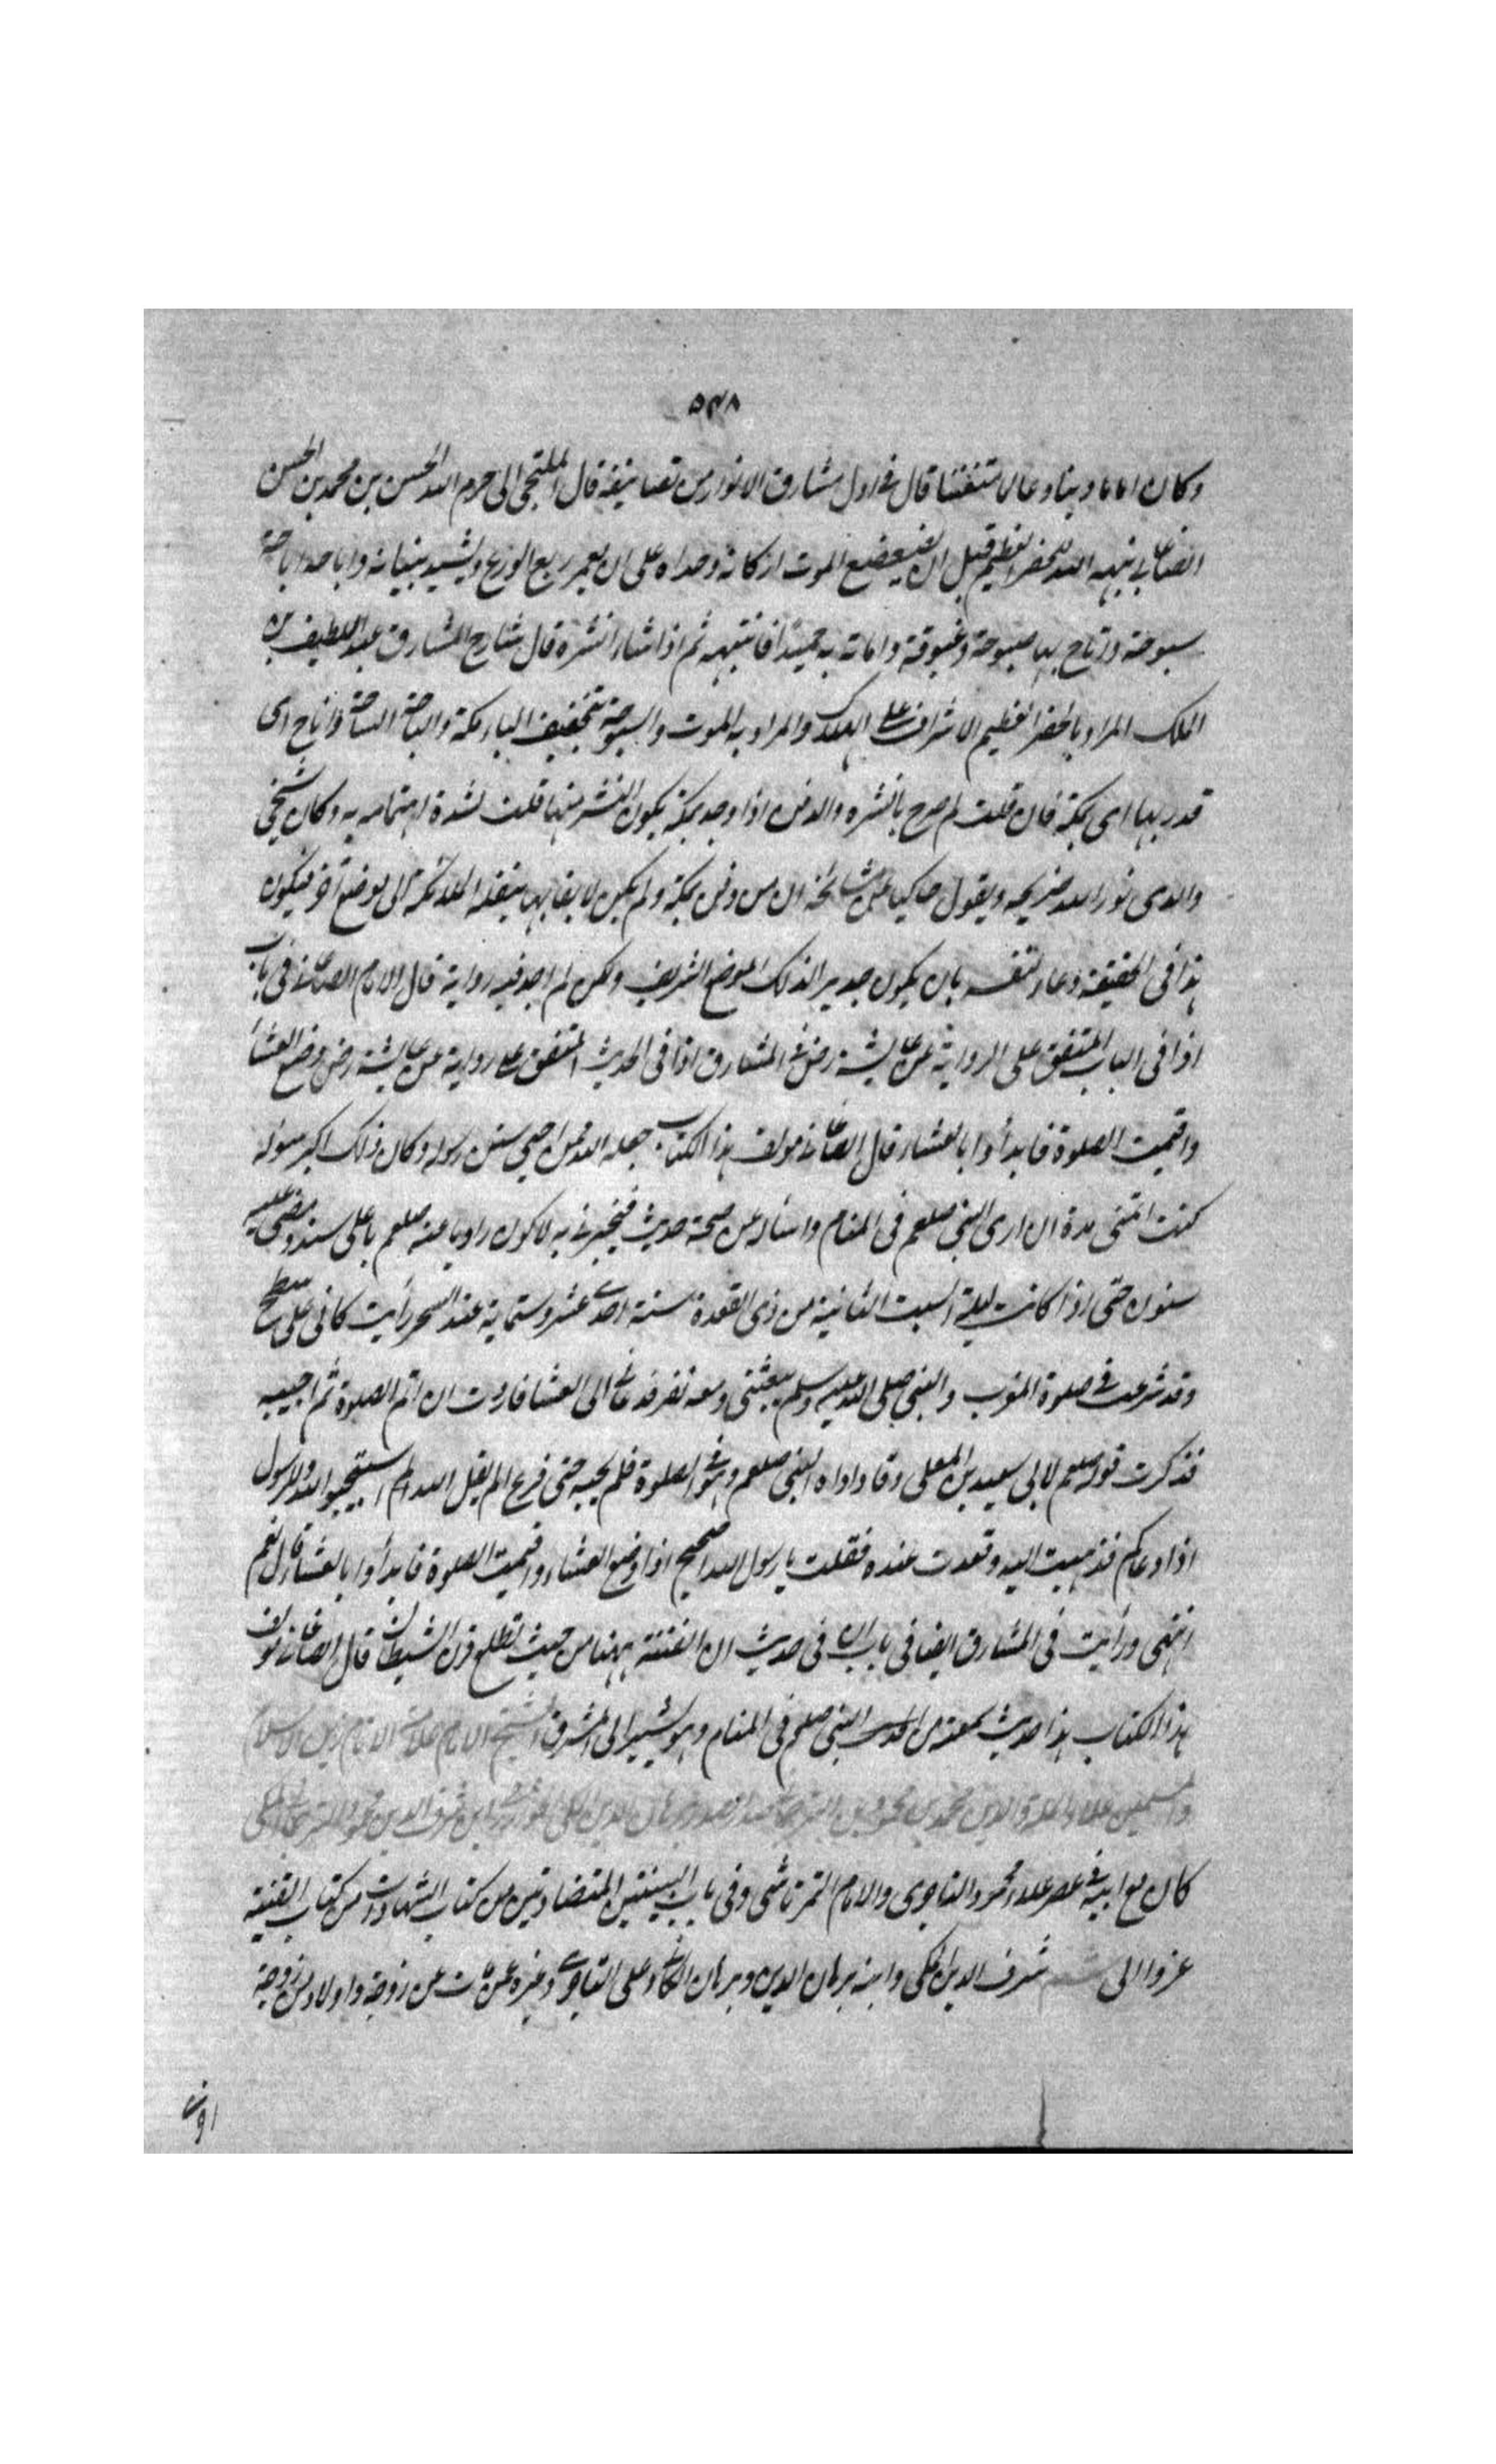 ٥٣٨
وكان اماما دينا وعالما متفننا قال فى اول مشارق الانوار من تصانيفه قال الملتجى الى حرم الله الحسن بن محمد بن الحسن
الصغانى نبهه الله للخطر العظيم قبل ان يضعضع الموت اركانه وحداه على ان يعمر ربع الورع ويشيد بنيانه واباحه اباحة
سبوحة وارتاح بها صبوحه وغبوقه واماته به حميدا فانتبهه ثم اذا شاء انشره قال شارح المشارق عبد اللطيف بن
الملك المراد بالخطر العظيم الاشراف على الهلاك والمراد به الموت والسبوحة بتخفيف الباء مكة والباحة الساحة واتاح اى
قدر بها اى بمكة فان قلت لم صرح بالنشره والدفن اذا وجد بمكة يكون النشر منها قلت لشدة اهتمامه به وكان شيخى
والدى نور الله ضريحه ويقول حاكيا عن مشائخه ان من دفن بمكة ولم يكن لايقا بها ينقله الملائكة الى موضع آخر فيكون
هذا فى الحقيقة دعاء لنفسه بان يكون جديرا لذلك الموضع الشريف ولكن لم اجد فيه رواية قال الامام الصغانى فى باب
اذا فى الباب المتفق على الرواية عن عايشة رض فى المشارق اذا فى الحديث المتفق على رواية عن عايشة رض وضع العشاء
واقيمت الصلوة فابدأوا بالعشاء قال الصغانى مولف هذا الكتاب جعله الله ممن احيى سنن رسوله وكان ذلك اكبر سوله
كنت اتمنى مدة ان ارى النبى صلعم فى المنام واساله عن صحة حديث فيخبرنى به لاكون راويا عنه صلعم باعلى سند ومضى عليه
سنون حتى اذا كانت ليلة السبت الثانية من ذى القعدة سنة احدى عشر وستماية عند السحر رأيت كانى على سطح
وقد شرعت فى صلوة المغرب والنبى صلى الله عليه وسلم يبعثنى ومعه نفر فدعانى الى العشا فاردت ان اتم الصلوة ثم اجيبه
فذكرت قوله صلعم لابى سعيد بن المعلى وقد ناداه النبى صلعم وهو فى الصلوة فلم يجبه حتى فرغ الم يقل الله استجيبوا لله وللرسول
اذا دعاكم فذهبت اليه وقعدت عنده فقلت يا رسول الله اصحيح اذا وضع العشاء واقيمت الصلوة فابدأوا بالعشاء قال نعم
انتهى ورأيت فى المشارق ايضا فى باب ان فى حديث ان الفتنة ههنا من حيث تطلع قرن الشيطان قال الصغانى مولف
هذا الكتاب هذا حديث سمعته من النبى صلعم فى المنام وهو يشير الى المشرق الشيخ الامام علامة الانام زين الاسلام
والمسلمين علاء الملة والدين محمد بن محمود بن الترجمانى برهان الدين المكى الخوارزمى ابن شرف الدين محمود الترجمانى المكى
كان مع ابيه فى عصر علاء محمود التاجرى والامام التمرتاشى وفى باب البينتين المتضادتين من كتاب الشهادات من كتاب القنية
عزوا الى شرف الدين المكى وابنه برهان الدين وبرهان وعلى وغيره عن مات عن زوجة واولاد من زوجة